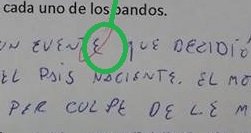 cada uno de los bandos.
UN EVENTE QUE DECIDIÓ
EL PAIS NACIENTE. EL MO
PER CULPE DE LE M